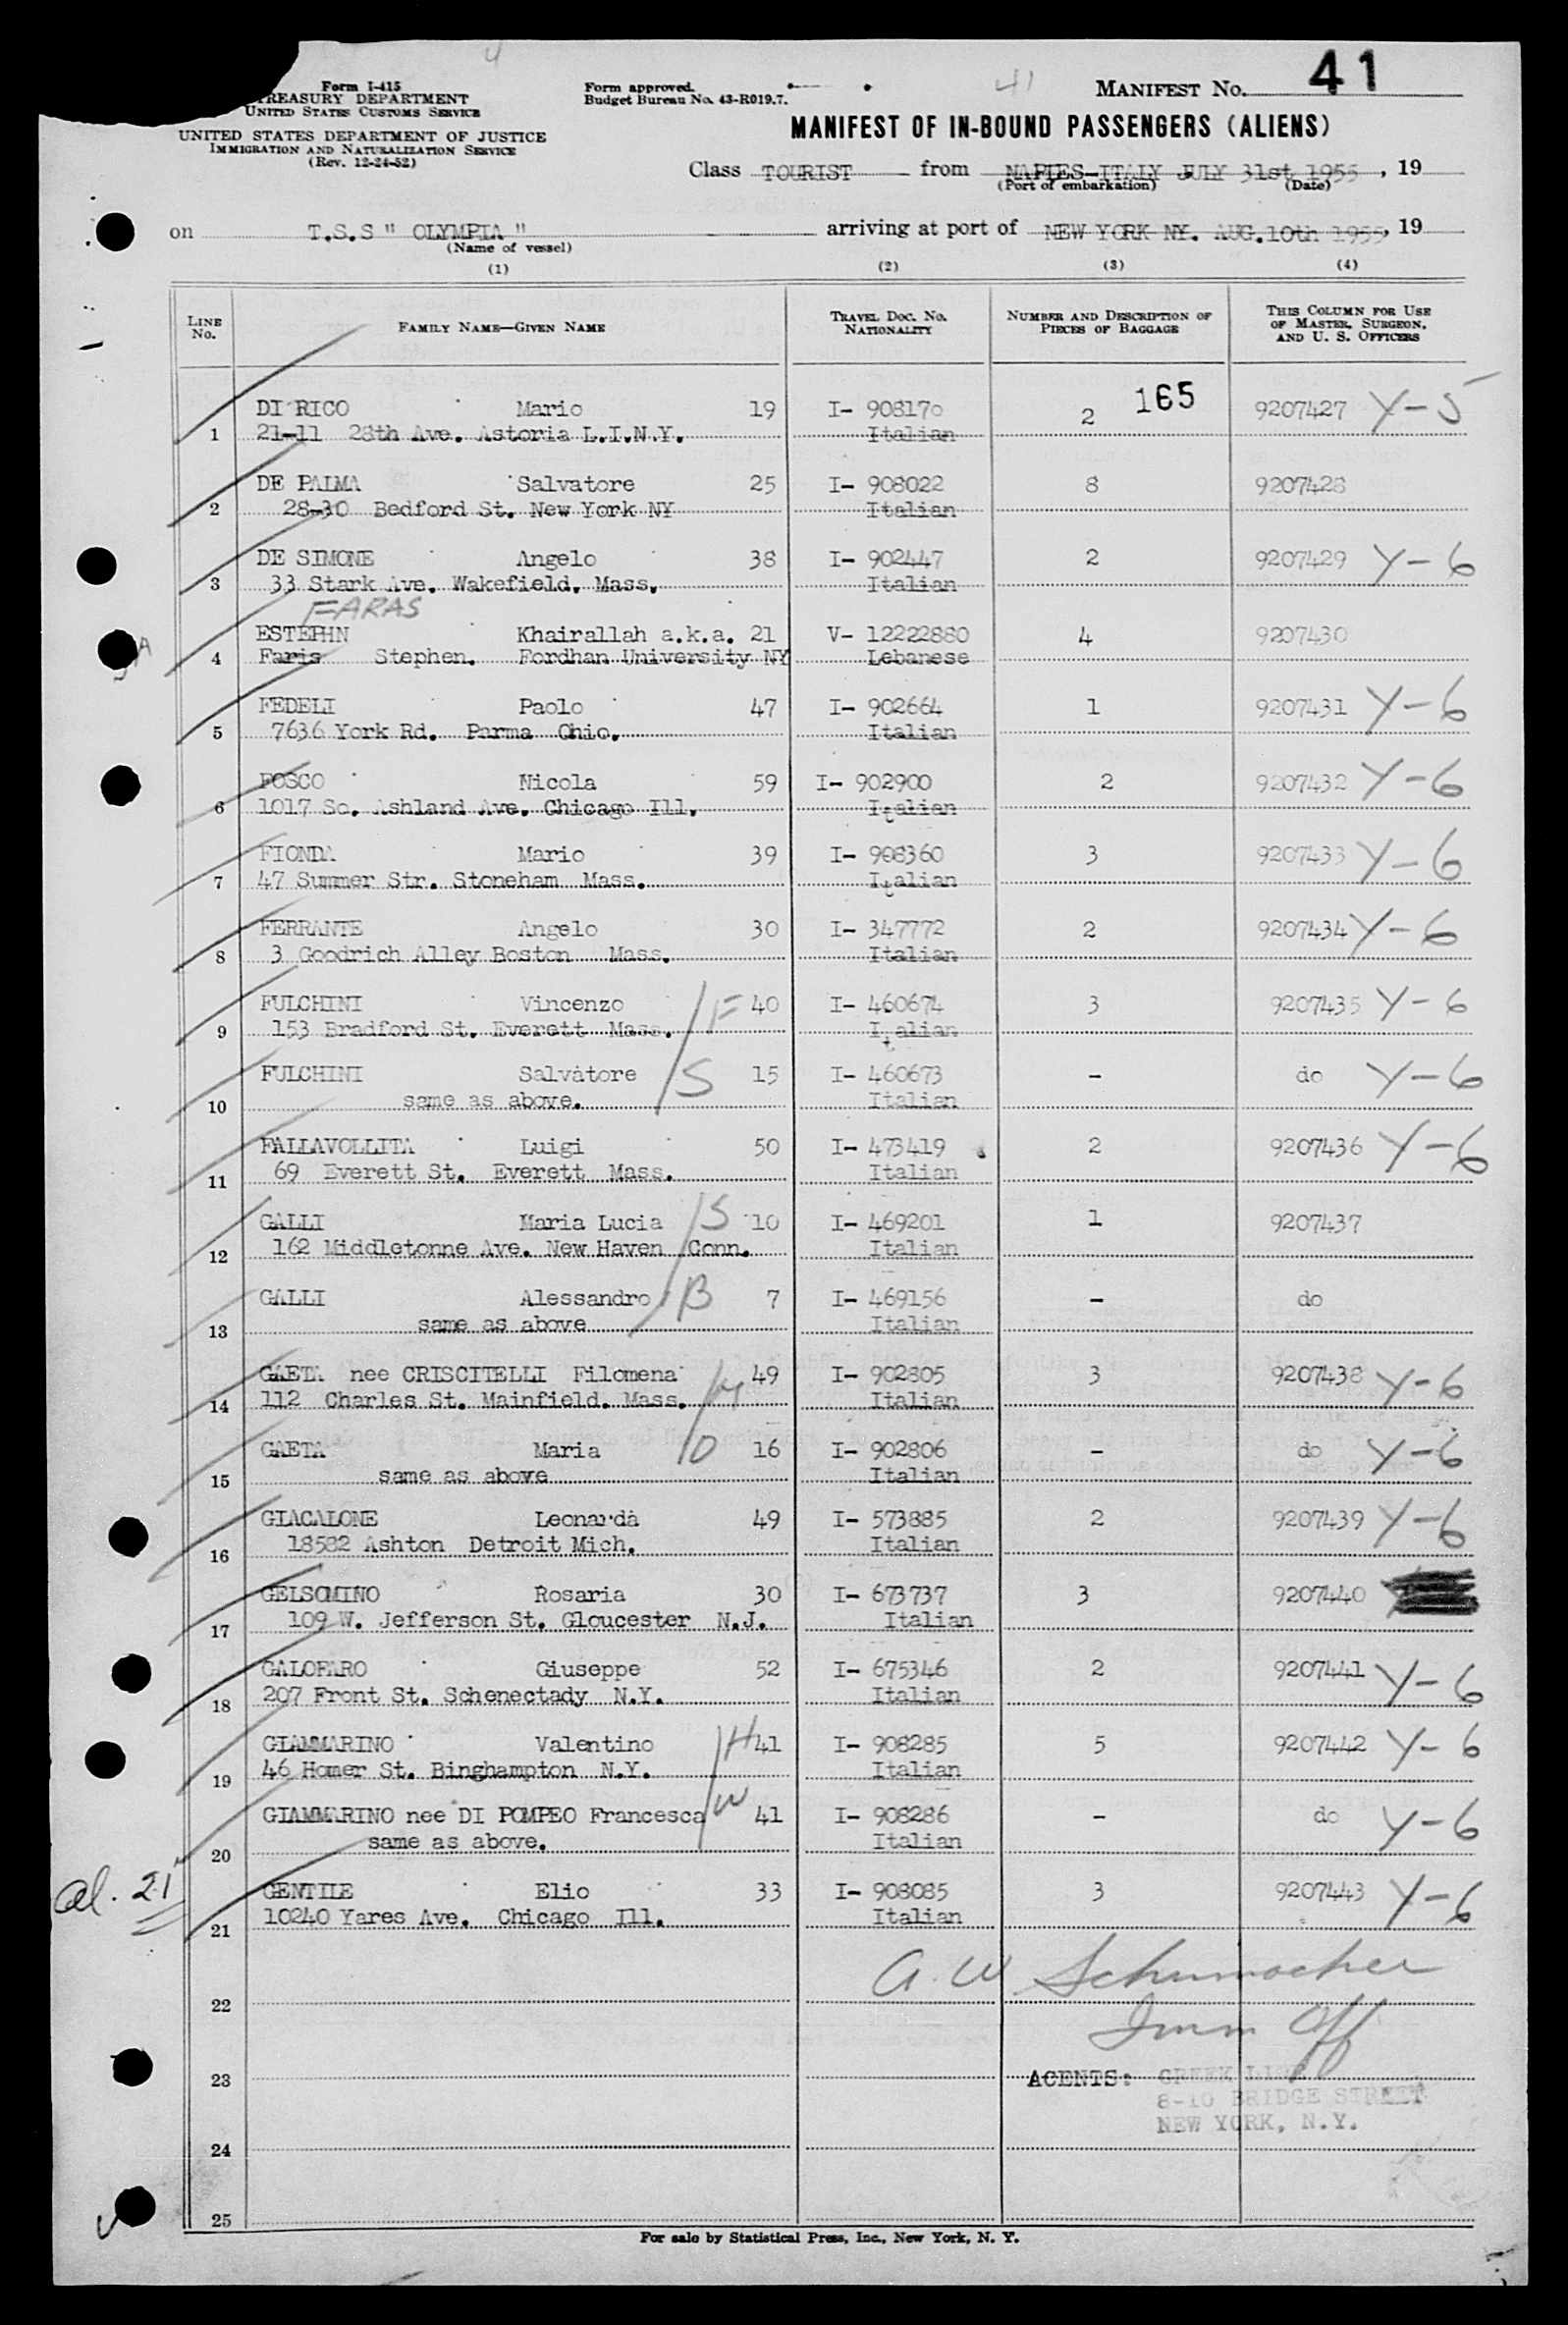 41
Form I-415
TREASURY DEPARTMENT
UNITED STATES CUSTOMS SERVICE
UNITED STATES DEPARTMENT OF JUSTICE
IMMIGRATION AND NATURALIZATION SERVICE
(Rev. 12-24-52)
Form approved.
Budget Bureau No. 43-R019.7.
41
MANIFEST NO.
MANIFEST OF IN-BOUND PASSENGERS (ALIENS)
Class TOURIST from NAPLES-ITALY JULY 31st 1955, 19
(Port of embarkation) (Date)
on T.S.S " OLYMPIA " arriving at port of NEW YORK NY. AUG.10th 1955, 19
(Name of vessel)
(1) (2) (3) (4)
LINE NO. FAMILY NAME—GIVEN NAME TRAVEL DOC. NO. NATIONALITY NUMBER AND DESCRIPTION OF PIECES OF BAGGAGE THIS COLUMN FOR USE OF MASTER, SURGEON, AND U. S. OFFICERS
DI RICO Mario 19 I- 908170 2 165 9207427 Y-5
1 21-11 28th Ave. Astoria L.I.N.Y. Italian
DE PALMA Salvatore 25 I- 908022 8 9207428
2 28-30 Bedford St. New York NY Italian
DE SIMONE Angelo 38 I- 902447 2 9207429 Y-6
3 33 Stark Ave. Wakefield. Mass. Italian
FARAS
ESTEPHN Khairallah a.k.a. 21 V- 12222880 4 9207430
4 Faris Stephen. Fordhan University NY Lebanese
FEDELI Paolo 47 I- 902664 1 9207431 Y-6
5 7636 York Rd. Parma Ohio. Italian
FOSCO Nicola 59 I- 902900 2 9207432 Y-6
6 1017 So. Ashland Ave. Chicago Ill. Italian
FIONDA Mario 39 I- 908360 3 9207433 Y-6
7 47 Summer Str. Stoneham Mass. Italian
FERRANTE Angelo 30 I- 347772 2 9207434 Y-6
8 3 Goodrich Alley Boston Mass. Italian
FULCHINI Vincenzo F 40 I- 460674 3 9207435 Y-6
9 153 Bradford St. Everett Mass. Italian
FULCHINI Salvatore S 15 I- 460673 - do Y-6
10 same as above. Italian
FALLAVOLLITA Luigi 50 I- 473419 2 9207436 Y-6
11 69 Everett St. Everett Mass. Italian
GALLI Maria Lucia S 10 I- 469201 1 9207437
12 162 Middletonne Ave. New Haven Conn. Italian
GALLI Alessandro B 7 I- 469156 - do
13 same as above Italian
GAETA nee CRISCITELLI Filomena 49 I- 902805 3 9207438 Y-6
14 112 Charles St. Mainfield. Mass. M Italian
GAETA Maria D 16 I- 902806 - do Y-6
15 same as above Italian
GIACALONE Leonarda 49 I- 573885 2 9207439 Y-6
16 18582 Ashton Detroit Mich. Italian
GELSOMINO Rosaria 30 I- 673737 3 9207440
17 109 W. Jefferson St. Gloucester N.J. Italian
GALOFARO Giuseppe 52 I- 675346 2 9207441 Y-6
18 207 Front St. Schenectady N.Y. Italian
GIAMMARINO Valentino H 41 I- 908285 5 9207442 Y-6
19 46 Homer St. Binghampton N.Y. Italian
GIAMMARINO nee DI POMPEO Francesca W 41 I- 908286 - do Y-6
20 same as above. Italian
al. 21
GENTILE Elio 33 I- 908085 3 9207443 Y-6
21 10240 Yares Ave. Chicago Ill. Italian
A. W Schumacher
22
Imm Off
23 AGENTS: GREEK LINE
8-10 BRIDGE STREET
NEW YORK, N.Y.
24
25
For sale by Statistical Press, Inc., New York, N. Y.